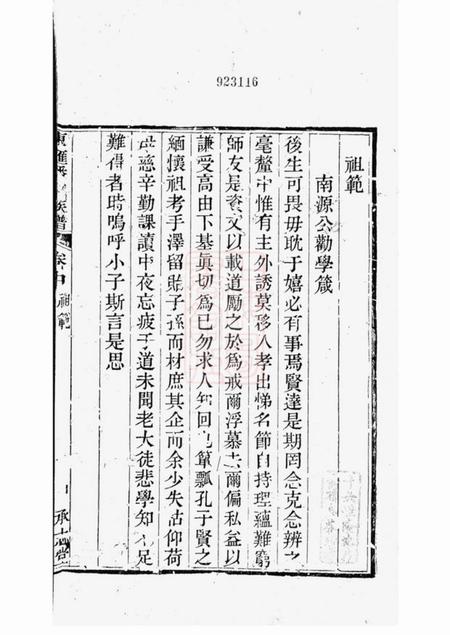 923116
祖範
南源公勸學箴
後生可畏毋耽于嬉必有事焉賢達是期罔念克念辨之
毫釐中惟有主外誘莫移入孝出悌名節自持理蘊難窮
師友是資文以載道勵之於為戒爾浮慕去爾偏私益以
謙受高由下基真切為己勿求人知回也簞瓢孔子賢之
緬懷祖考手澤留貽子孫而材庶其企而余少失怙仰荷
母慈辛勤課讀中夜忘疲予道未聞老大徒悲學知不足
難得者時嗚呼小子斯言是思
族譜
卷中 祖範
承